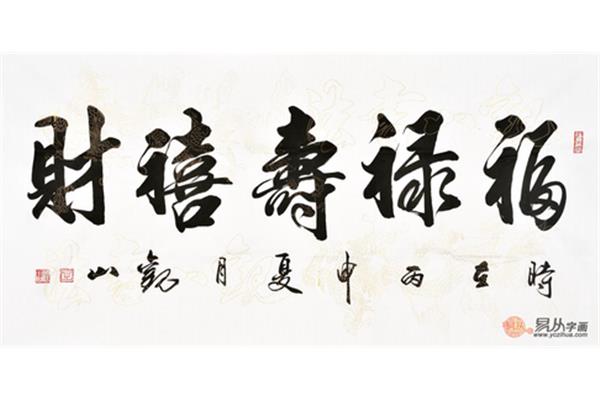 福禄壽禧財
時在丙申夏月觀山
易从字画
www.yczihua.com